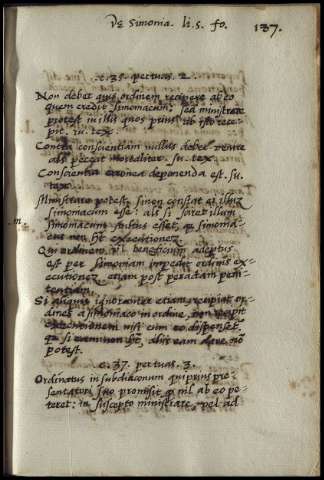 De Simonia. li. 5. fo. 137.
c. 35. per tuas. 2.
Non debet quis ordinem recipere ab eo
quem credit simoniacum; sed ministrare
potest in illis quos prius ab isto rece-
pit. in. tex.
Contra conscientiam nullus debet venire
als peccat mortaliter. in. tex.
Conscientia erronea deponenda est. in.
tex.
Ministrare potest si non constat et illum
simoniacum esse: als si sciret illum
simoniacum
non ht executionez.
Qui ordinem vl beneficium adeptus
est per simoniam impedit ordinis ex-
ecutionez, etiam post peractam peni-
tentiam.
Si aliquis ignoranter etiam recipiat or-
dines a simoniaco in ordine, non recipit
executionem nisi cum eo dispenset.
si non ht, alij eam dare nō
potest.
c. 37. per tuas. 3.
Ordinatus in subdiaconum qui prius pre-
sentatori suo promisit q nil ab eo pe-
teret: in suscepto ministrare, vel ad